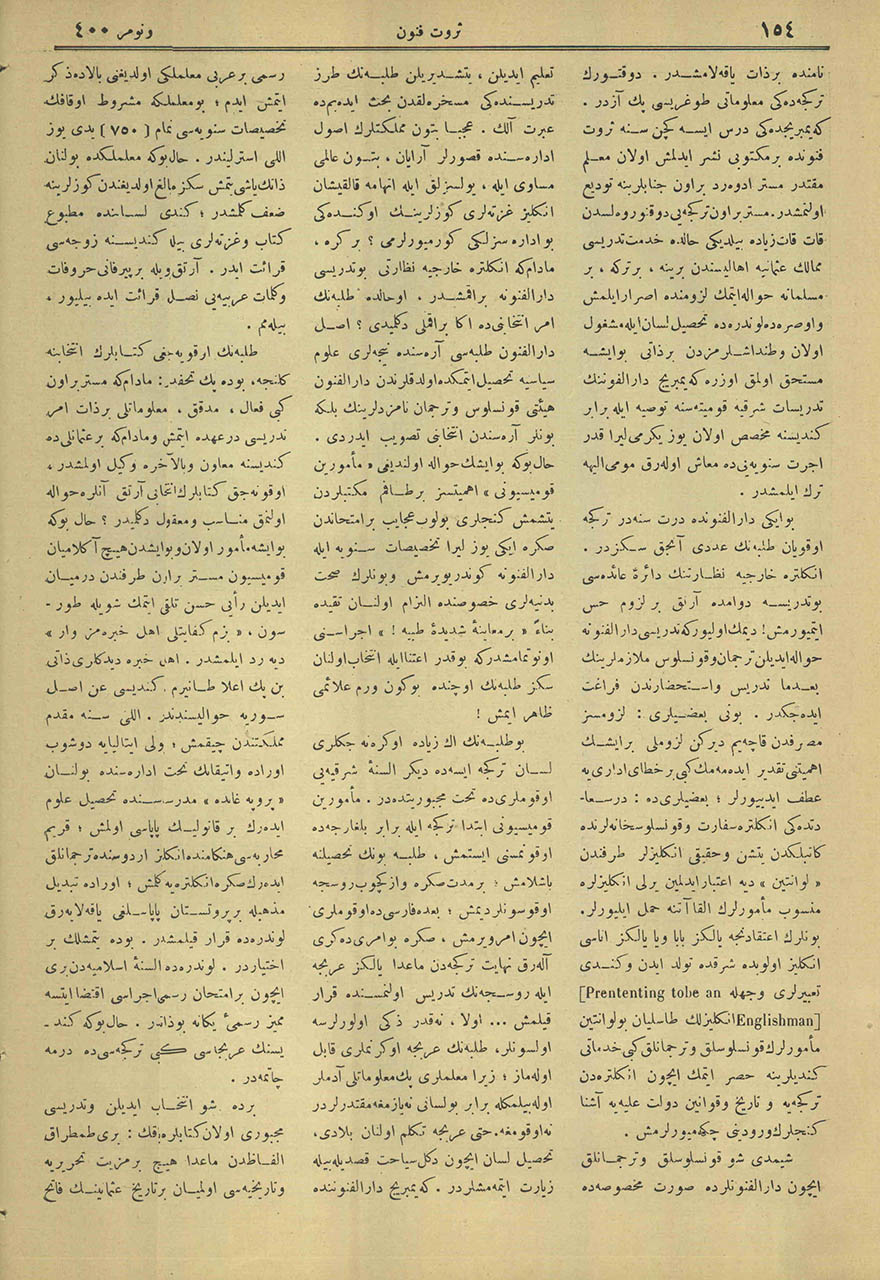 ١٥٤
ثروت فنون
ونومر ٤٠٠
نامنده برذات یاقه‌لامشدر . دوقتورك
تركجه‌ده‌كی معلوماتی طوغریسی پك آزدر .
كه‌یمبریجده‌كی درس ایسه كچن سنه ثروت
فنونده برمكتوبی نشر ایدلمش اولان معلم
مقتدر مستر ادوه‌رد براون جنابلرینه تودیع
اولنمشدر. مستر براون تركجه‌یی دوقتور وه‌لسدن
قات قات زیاده بیلدیكی حالده خدمت تدریسی
ممالك عثمانیه اهالیسندن برینه ، برتركه ، بر
مسلمانه حواله ایتمك لزومنده اصرار ایلمش
و اوصره‌ده لوندره‌ده تحصیل لسان ایله مشغول
اولان وطنداشلرمزدن برذاتی بوایشه
مستحق اولمق اوزره كه‌یمبریج دارالفنوننك
تدریسات شرقیه قومیته‌سنه توصیه ایله برابر
كندیسنه مخصص اولان یوز یكرمی لیرا قدر
اجرت سنویه‌یی‌ده معاش اوله‌رق مومی الیهه
ترك ایلمشدر .
بوایكی دارالفنونده درت سنه‌در تركجه
اوقویان طلبه‌نك عددی آنجق سكزدر .
انكلتره خارجیه نظارتنك دائرهٔ عائده‌سی
بوتدریسه دوامده آرتق بر لزوم حس
ایتمیورمش! دیمك اولیوركه تدریسی دارالفنونه
حواله ایدیلن ترجمان وقونسلوس ملازملرینك
بعدما تدریس واستحضارندن فراغت
ایده‌جكدر . بونی بعضیلری : لزومسز
مصرفدن قاچه‌یم دیركن لزوملی برایشك
اهمیتنی تقدیر ایده‌مه‌مك كبی برخطای اداری‌یه
عطف ایدییورلر ؛ بعضیلری‌ده : درسعا-
دتده‌كی انكلتره سفارت وقونسلوسخانه‌لرنده
كاتبلكدن یتشن وحقیقی انكلیزلر طرفندن
« لوانتین » دیه اعتبار ایدلمین یرلی انكلیزلره
منسوب مأمورلرك القاآتنه حمل ایلیورلر.
بونلرك اعتقادنجه یالكز بابا ویا یالكز اناسی
انكلیز اولوبده شرقده تولد ایدن وكندی
تعبیرلری وجهله [Prententing tobe an
Englishman] انكلیزلك طاسلیان بولوانتین
مأمورلرك قونسلوسلق وترجمانلق كبی خدماتی
كندیلرینه حصر ایتمك ایچون انكلتره‌دن
تركجه‌یه و تاریخ وقوانین دولت علیه‌یه آشنا
كنجلرك ورودینی چكه‌میورلرمش .
شیمدی شو قونسلوسلق وترجمانلق
ایچون دارالفنونلرده صورت مخصوصه‌ده
تعلیم ایدیلن ، یتشدیریلن طلبه‌نك طرز
تدریسنده‌كی مسخره‌لقدن بحث ایده‌یم‌ده
عبرت آلك . عجبا بتون مملكتلرك اصول
اداره‌سنده قصورلر آرایان ، بتون عالمی
مساوی ایله ، یولسزلق ایله اتهامه قالقیشان
انكلیز غزته‌لری كوزلرینك اوكنده‌كی
بو اداره سزلكی كورمیورلرمی ؟ بر كره ،
مادام‌كه انكلتره خارجیه نظارتی بوتدریسی
دارالفنونه براقمشدر . اوحالده طلبه‌نك
امر انتخابی‌ده اكا براقملی دكلمیدی ؟ اصل
دارالفنون طلبه‌سی آره‌سنده نیجه‌لری علوم
سیاسیه تحصیل ایتمكده اولدقلرندن دارالفنون
هیئتی قونسلوس وترجمان نامزدلرینك بلكه
بونلر آره‌سندن انتخابنی تصویب ایدردی .
حال بوكه بوایشك حواله اولندیغی « مأمورین
قومیسیونی » اهمیتسز برطاقم مكتبلردن
یتشمش كنجلری بولوب عجایب برامتحاندن
صكره ایكی یوز لیرا تخصیصات سنویه ایله
دارالفنونه كوندرییورمش وبونلرك صحت
بدنیه‌لری خصوصنده التزام اولنان تقیده
بناءً « برمعاینهٔ شدیدهٔ طبیه ! » اجراسنی
اونوتمامشدركه بوقدر اعتنا ایله انتخاب اولنان
سكز طلبه‌نك اوچنده بوكون ورم علائمی
ظاهر ایمش !
بوطلبه‌نك اك زیاده اوكره‌نه جكلری
لسان تركجه ایسه‌ده دیكر السنهٔ شرقیه‌یی
اوقوملری‌ده تحت مجبوریتده‌در . مأمورین
قومیسیونی ابتدا تركجه ایله برابر بلغارجه‌ده
اوقونمسنی ایستمش ، طلبه بونك تحصیلنه
باشلامش ؛ برمدت صكره وازكچوب روسجه
اوقوسونلر دیمش ؛ بعده فارسی‌ده اوقوملری
ایچون امر ویرمش ، صكره بوامری‌ده كری
آله‌رق نهایت تركجه‌دن ماعدا یالكز عربجه
ایله روسجه‌نك تدریس اولنمسنده قرار
قیلمش ... اولا ، نه‌قدر ذكی اولورلرسه
اولسونلر، طلبه‌نك عربجه اوكرنملری قابل
اوله‌ماز ؛ زیرا معلملری پك معلوماتلی آدملر
اوله بیلمكله برابر بولسانی نه‌یازمغه مقتدرلردر
نه اوقومغه. حتی عربجه تكلم اولنان بلادی،
تحصیل لسان ایچون دكل سیاحت قصدیله بیله
زیارت ایتمه‌مشلردر . كه‌یمبریج دارالفنوننده
رسمی برعربی معلملكی اولدیغنی بالاده ذكر
ایتمش ایدم ؛ بومعلملكه مشروط اوقافك
تخصیصات سنویه‌سی تمام [٧٥٠] یدی یوز
اللی استرلیندر . حال بوكه معلملكده بولنان
ذاتك یاشی یتمش سكزه بالغ اولدیغندن كوزلرینه
ضعف كلمشدر ؛ كندی لساننده مطبوع
كتاب وغزته‌لری بیله كندیسنه زوجه‌سی
قرائت ایدر . آرتق بویله بر پیرفانی حروفات
وكلمات عربیه‌یی نصل قرائت ایده بیلیور ،
بیله‌مم .
طلبه‌نك اوقویه‌جغی كتابلرك انتخابنه
كلنجه، بوده پك تحفدر: مادام‌كه مستر براون
كبی فعال ، مدقق ، معلوماتلی برذات امر
تدریسی درعهده ایتمش ومادام‌كه برعثمانلی‌ده
كندیسنه معاون وبالآخره وكیل اولمشدر،
اوقونه‌جق كتابلرك انتخابی آرتق آنلره حواله
اولنمق مناسب ومعقول دكلمیدر ؟ حال بوكه
بوایشه مأمور اولان وبوایشدن هیچ آكلامیان
قومیسیون مستر براون طرفندن درمیان
ایدیلن رأیی حسن تلقی ایتمك شویله طور-
سون ، « بزم كفایتلی اهل خبره‌مز وار »
دیه رد ایلمشدر . اهل خبره دیدكلری ذاتی
بن پك اعلا طانیرم . كندیسی عن اصل
سوریه حوالیسندندر . اللی سنه مقدم
مملكتندن چیقمش ؛ ولی ایتالیایه دوشوب
اوراده واتیقانك تحت اداره‌سنده بولنان
« پروپه غانده » مدرسه‌سنده تحصیل علوم
ایده‌رك بر قاتولیك پاپاسی اولمش ؛ قریم
محاربه‌سی هنكامنده انكلیز اردوسنده ترجمانلق
ایده‌رك صكره انكلتره‌یه كلمش ؛ اوراده تبدیل
مذهبله برپروتستان پاپاسلغی یاقه‌لایه‌رق
لوندره‌ده قرار قیلمشدر . بوده یتمشلك بر
اختیاردر . لوندره‌ده السنهٔ اسلامیه‌دن بری
ایچون برامتحان رسمی اجراسی اقتضا ایتسه
ممیز رسمیٔ یكانه بوذاتدر . حال بوكه كند -
یسنك عربجاسی كبی تركجه‌سی‌ده درمه
چاتمه‌در .
برده شو انتخاب ایدیلن وتدریسی
مجبوری اولان كتابلره باقك : بری طمطراق
الفاظدن ماعدا هیچ برمزیت تحریریه
وتاریخیه‌سی اولمیان برتاریخ عثمانینك فاتح